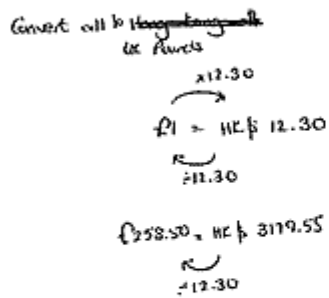 Convert all to
UK Pounds
x12.30
£1 = HK$ 12.30
÷12.30
£258.50 = HK$ 3179.55
÷12.30